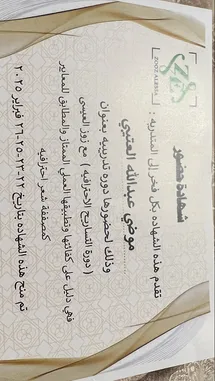 ZOOZ ALESSA
شهادة حضور
تقدم هذه الشهاده بكل فخر إلى المتدربه :
موضي عبدالله العتيبي
وذلك لحضورها دوره تدريبيه بعنوان
( دورة التساريح الاحترافيه ) مع زوز العيسى
فهي دليل على كفائتها وتطبيقها العملي الممتاز والمطابق للمعايير
كمصففة شعر احترافيه
تم منح هذه الشهاده بتاريخ ٢٢-٢٣-٢٥-٢٦ فبراير ٢٠٢٥